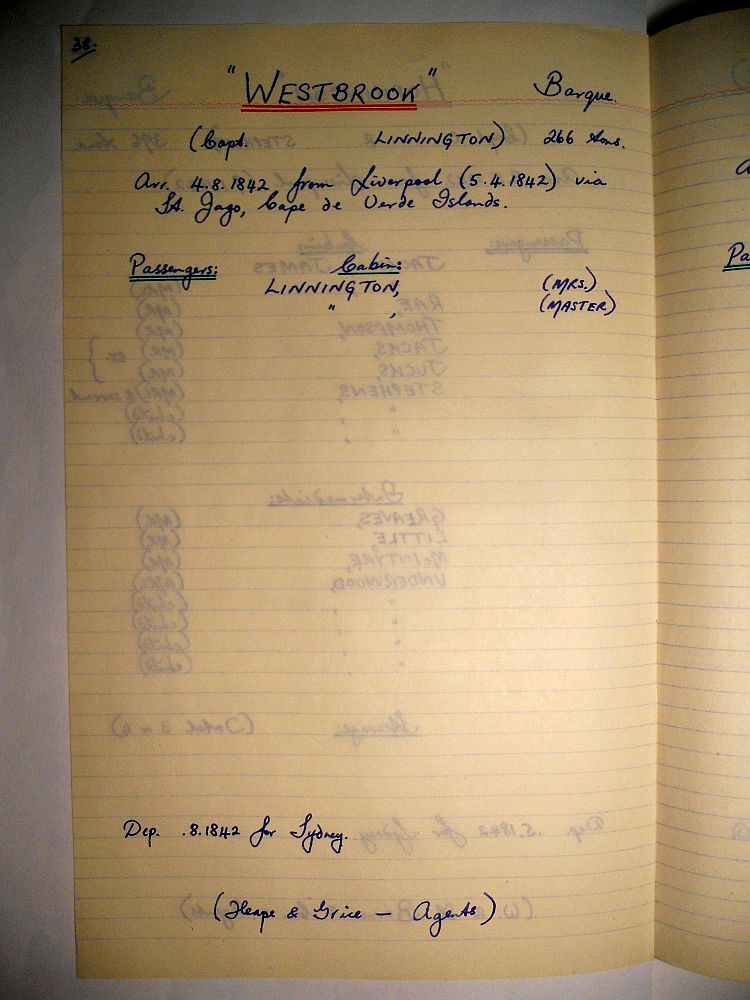 38.
"WESTBROOK" Barque.
(Capt. LINNINGTON) 266 tons.
Arr. 4.8.1842 from Liverpool (5.4.1842) via
St. Jago, Cape de Verde Islands.
Passengers: Cabin:
LINNINGTON, (MRS.)
" , (MASTER)
Dep. .8.1842 for Sydney.
(Heape & Grice — Agents)
Pa